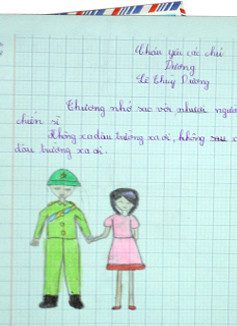 Thân yêu các chú
Dương
Lê Thuỳ Dương
Thương nhớ sao với
chiến sĩ
Không xa đâu trường xa ơi, không
đâu trường xa ơi.